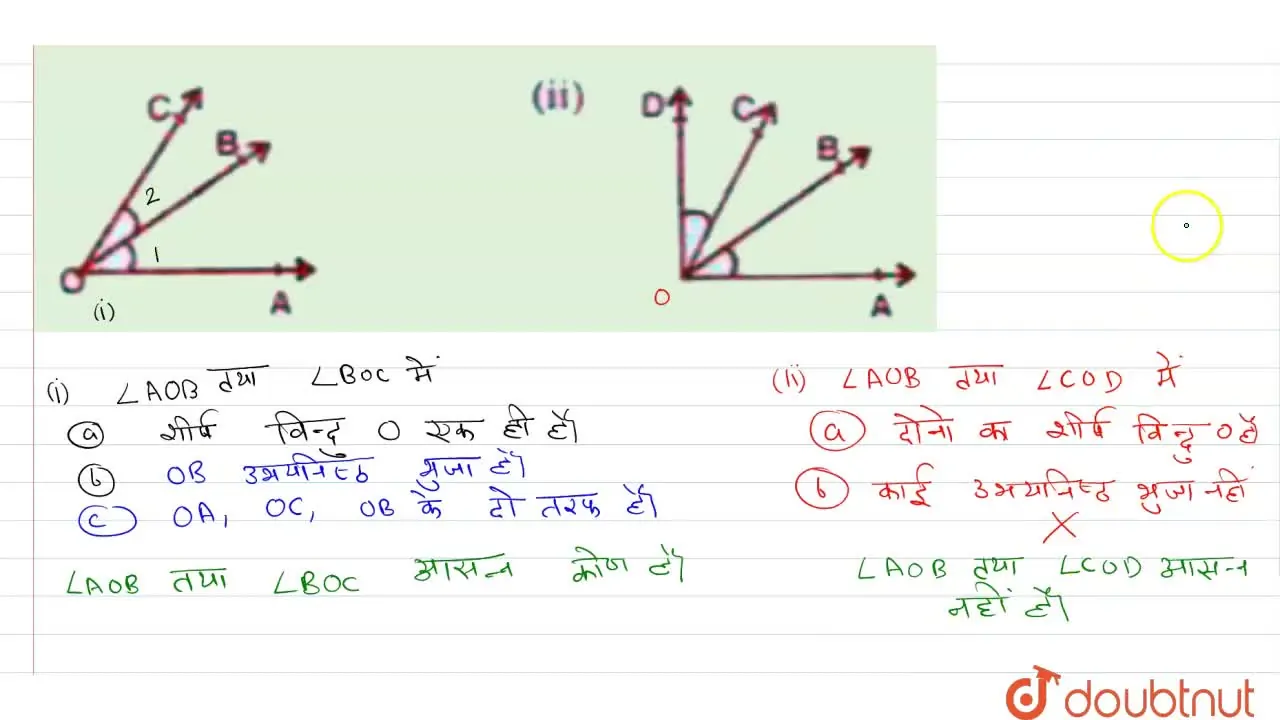 C
B
2
1
O
A
(i)
(ii)
D
C
B
O
A
(i) ∠AOB तथा ∠BOC में
(a) शीर्ष विन्दु O एक ही है।
(b) OB उभयनिष्ठ भुजा है।
(c) OA, OC, OB के दो तरफ है।
∠AOB तथा ∠BOC आसन्न कोण है।
(ii) ∠AOB तथा ∠COD में
(a) दोनो का शीर्ष विन्दु O है
(b) काई उभयनिष्ठ भुजा नहीं
X
∠AOB तथा ∠COD आसन्न
नहीं है।
doubtnut